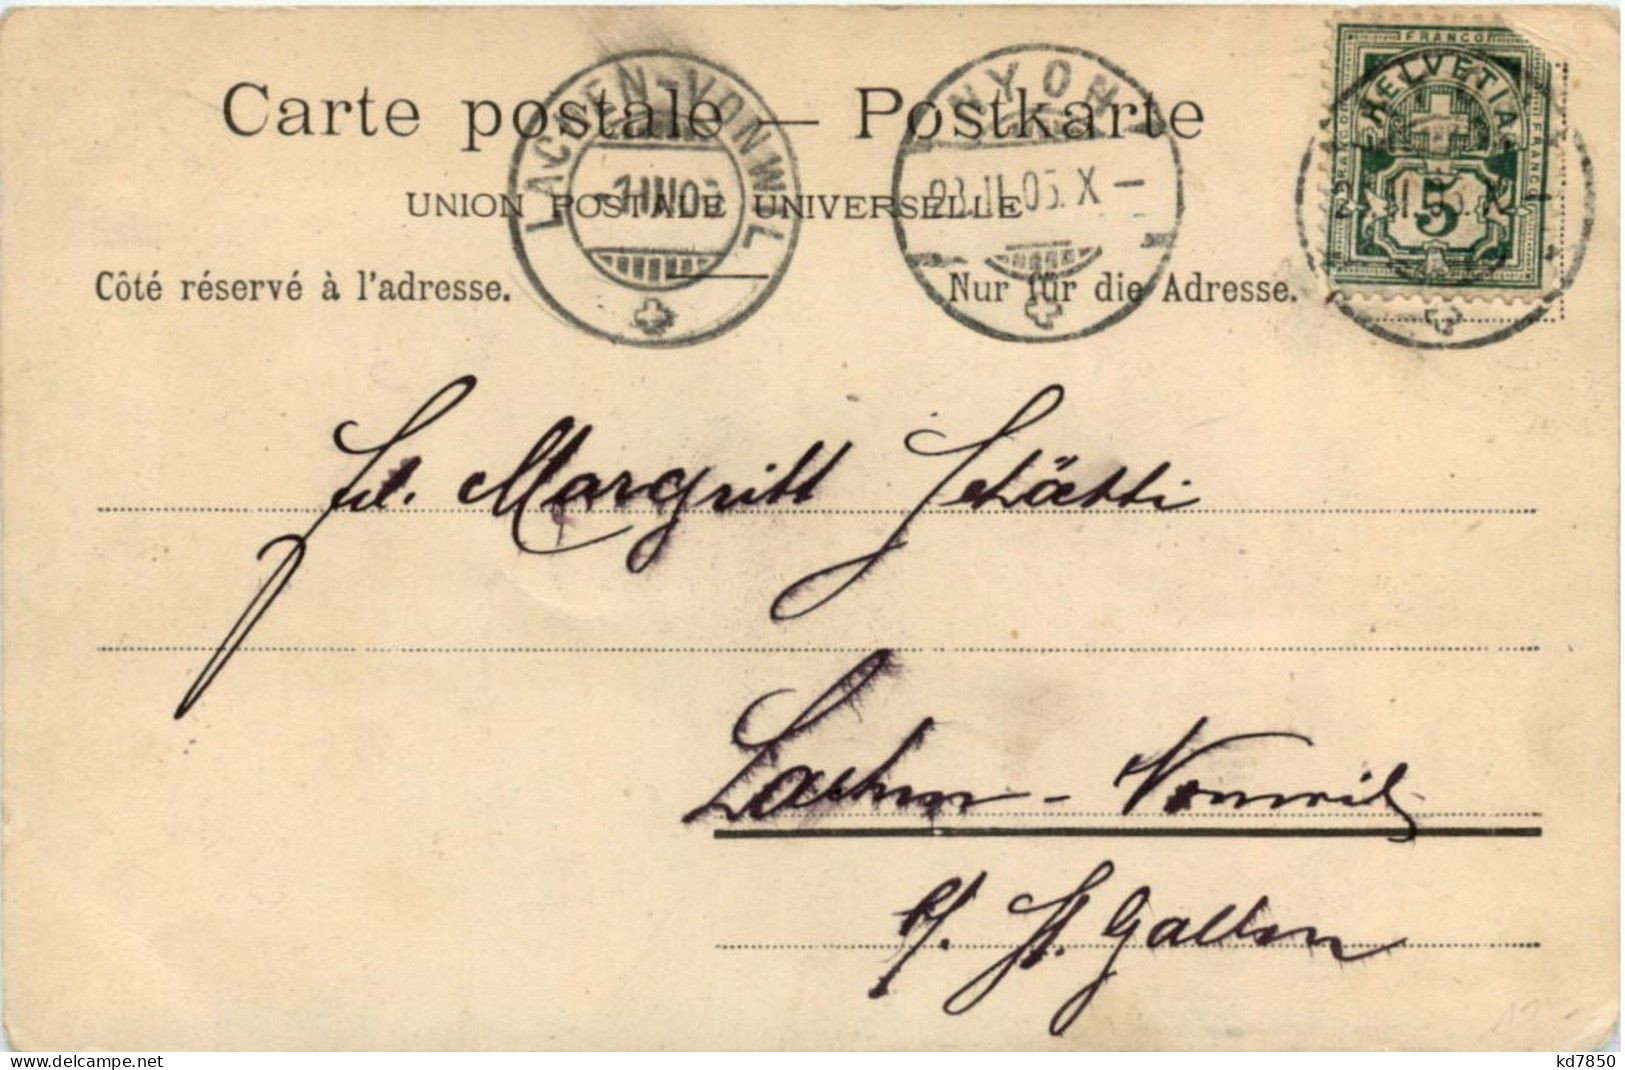 Carte postale — Postkarte
UNION POSTALE UNIVERSELLE
Côté réservé à l'adresse.
Nur für die Adresse.
LACHEN-VONWIL
NYON
28.II.05.X –
FRANCO
HELVETIA
5
Frl. Margritt Schätti
Lachen - Vonwil
b/. St. Gallen
www.delcampe.net
kd7850